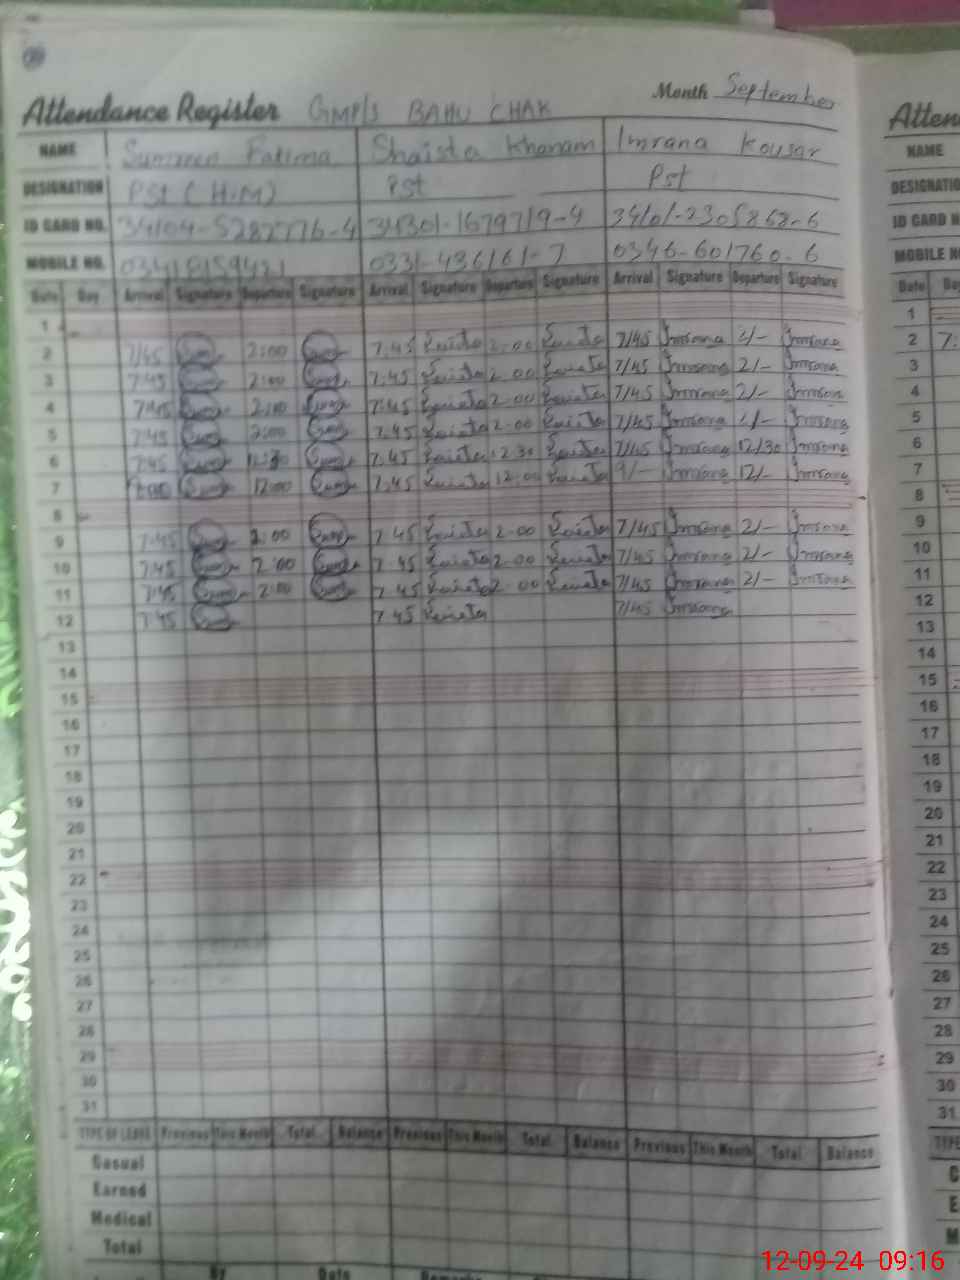 Month September
Attendance Register GMP/S BAHU CHAK
NAME Summen Fatima Shaista Khanam Imrana Kousar
DESIGNATION PST (H.M) PST Pst
ID CARD NO. 34104-5282776-4 34301-1679719-4 34101-2305868-6
MOBILE NO. 03418159421 0331-436161-7 0346-601760-6
Date Day Arrival Signature Departure Signature Arrival Signature Departure Signature Arrival Signature Departure Signature
1
2 7/45 2:00 7:45 2:00 7/45 Imrana 2/- Imrana
3 7:45 2:00 7:45 2:00 7/45 Imrana 2/- Imrana
4 7:45 2:00 7:45 2:00 7/45 Imrana 2/- Imrana
5 7:45 2:00 7:45 2:00 7/45 Imrana 2/- Imrana
6 7:45 12:30 7:45 12 30 7/45 Imrana 12/30 Imrana
7 12:00 7:45 12:00 9/- Imrana 12/- Imrana
8
9 7:45 2:00 7 45 2-00 7/45 Imrana 2/- Imrana
10 7:45 2:00 7 45 2-00 7/45 Imrana 2/- Imrana
11 7:45 2:00 7 45 2-00 7/45 Imrana 2/- Imrana
12 7:45 7 45 7/45 Imrana
13
14
15
16
17
18
19
20
21
22
23
24
25
26
27
28
29
30
31
TYPE OF LEAVE Previous This Month Total Balance Previous This Month Total Balance Previous This Month Total Balance
Casual
Earned
Medical
Total
By Date Remarks
Atten
NAME
DESIGNATIO
ID CARD N
MOBILE N
Date Da
1
2 7:
3
4
5
6
7
8
9
10
11
12
13
14
15
16
17
18
19
20
21
22
23
24
25
26
27
28
29
30
31
TYPE
C
E
M
12-09-24 09:16